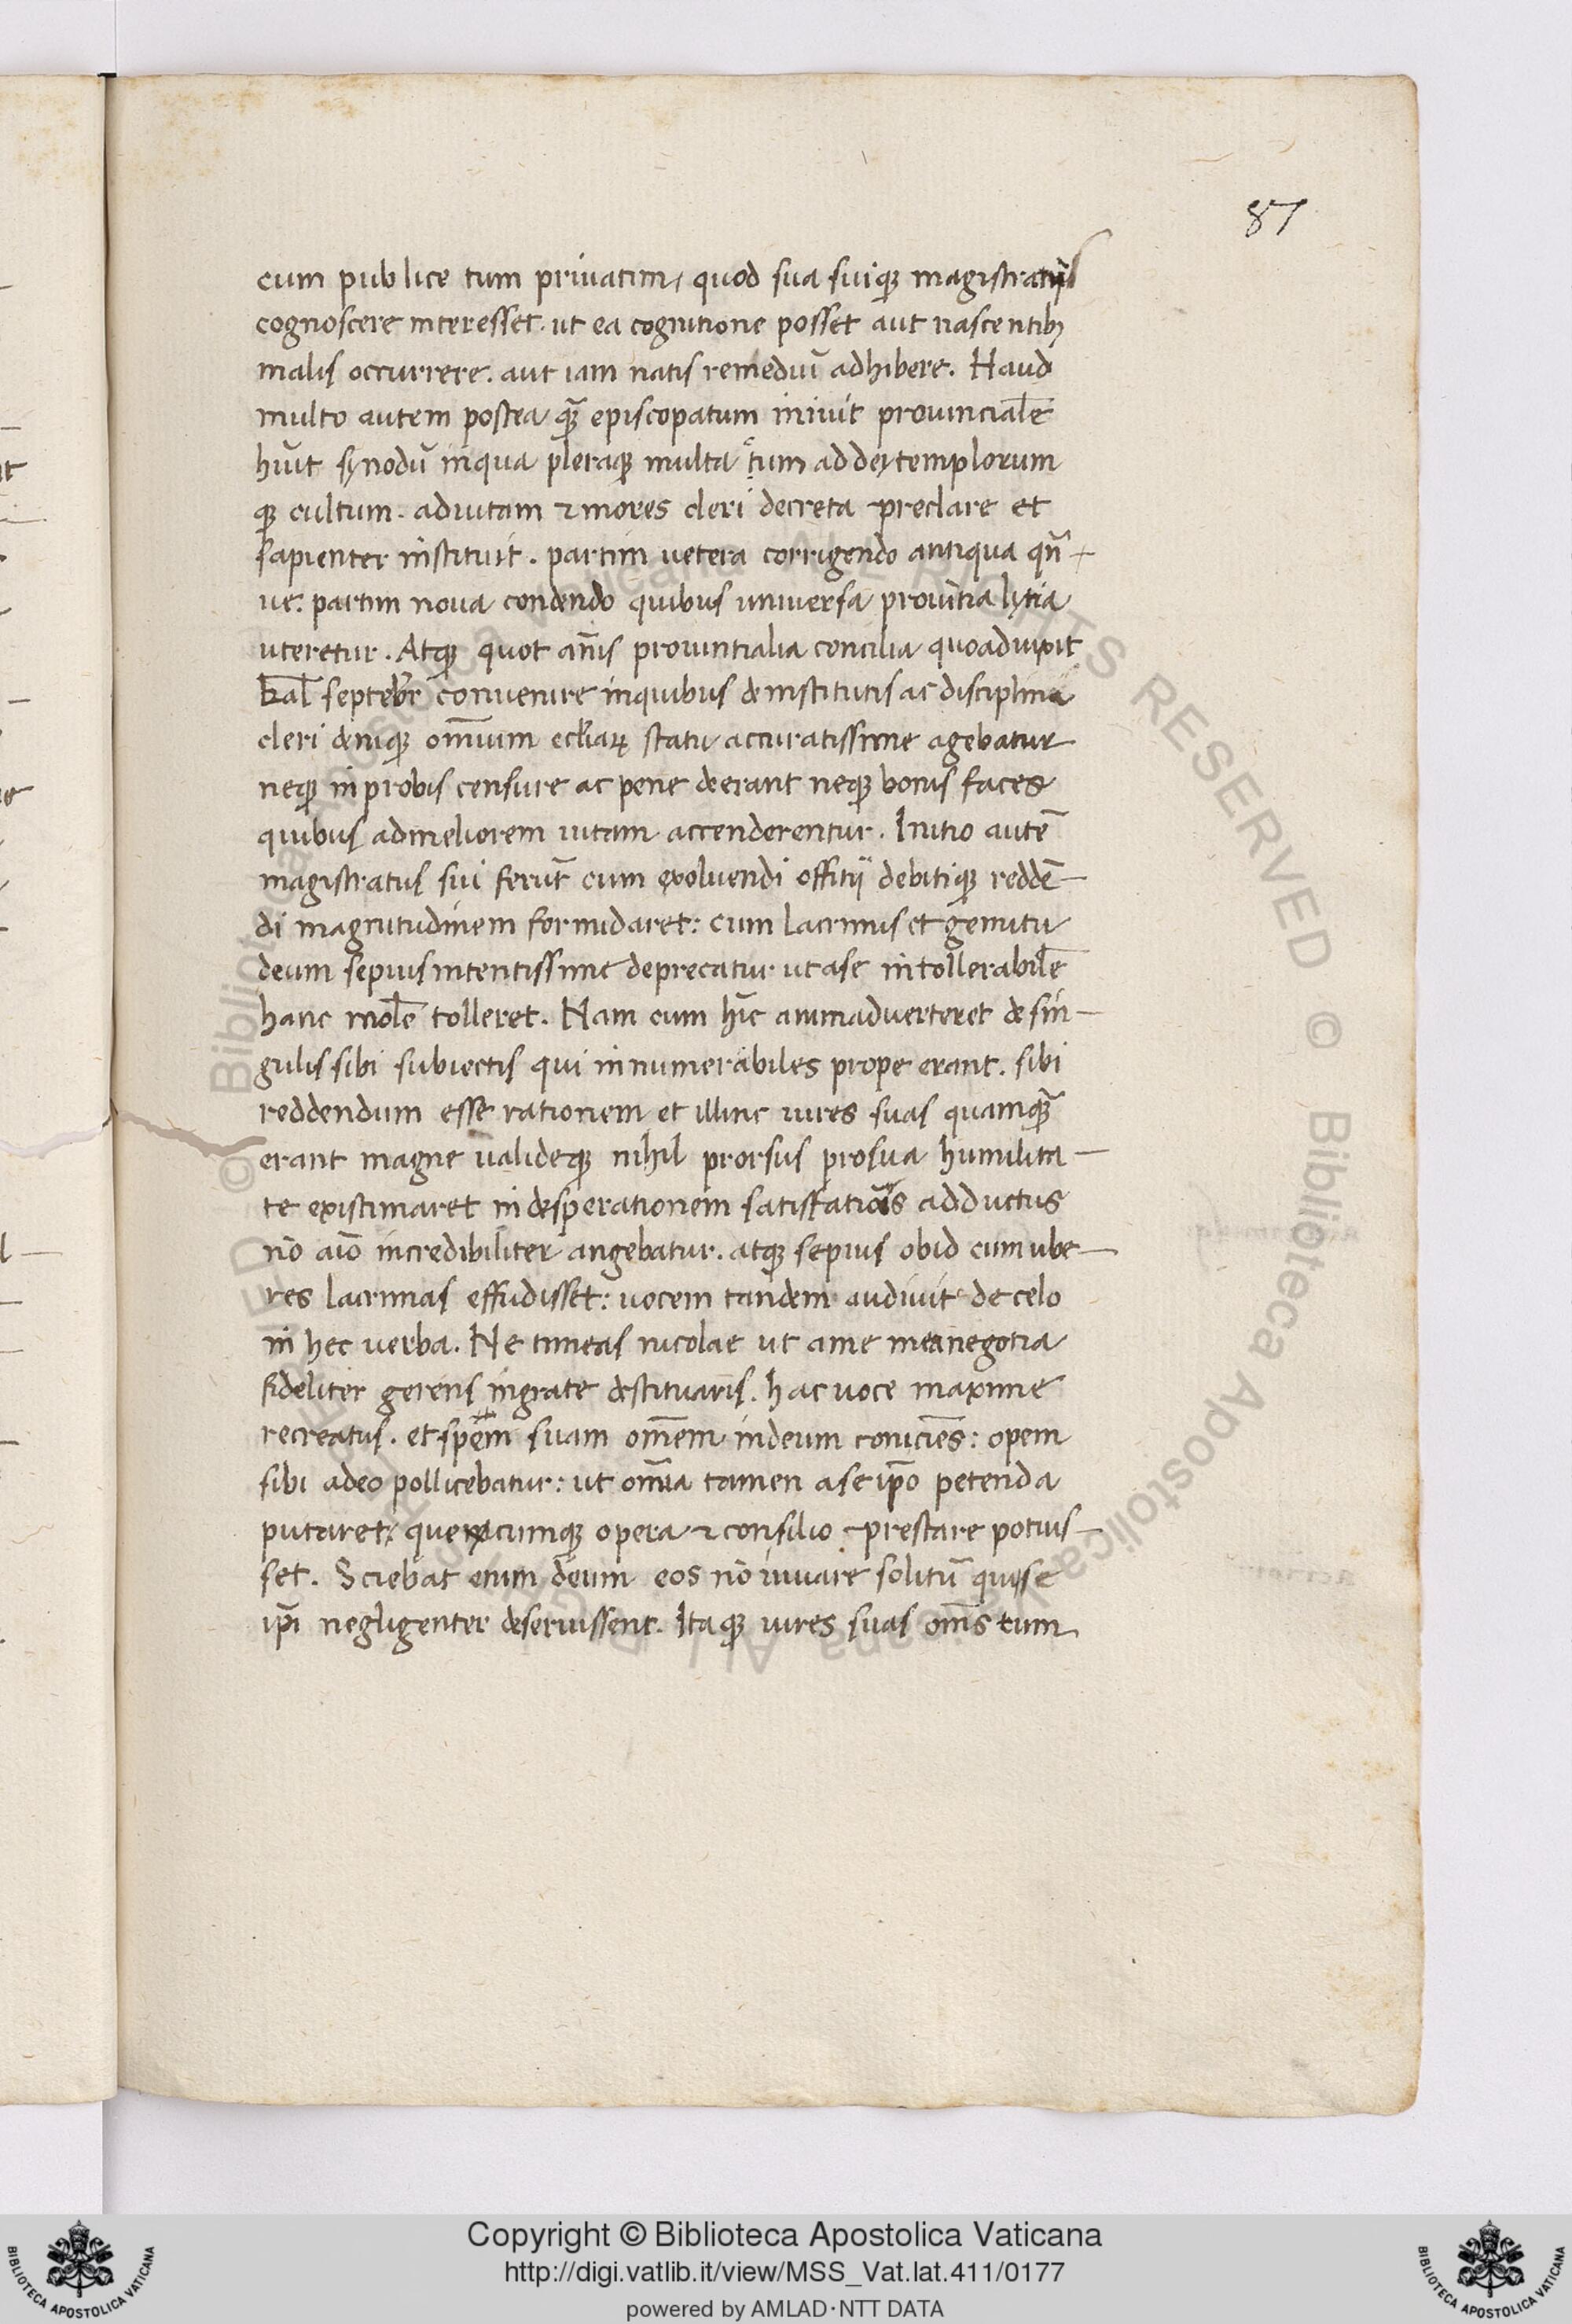 87
cum publice tum priuatim, quod sua suiq; magistratus
cognoscere interesset. ut ea cognitione posset aut nascentib;
malis occurrere. aut iam natis remediū adhibere. Haud
multo autem postea q̄ episcopatum iniuit prouincialē
hūit synodū inqua pleraq; multa tum ad dei templorum
q; cultum. aduitam & mores cleri decreta preclare et
sapienter instituit. partim uetera corrigendo antiqua qn̄
ue: partim noua condendo quibus uniuersa prouītia lytia
uteretur. Atq; quot an̄is prouintialia concilia quoaduixit
kal septēbr conuenire inquibus deinstitutis ac disciplina
cleri deniq; om̄ium eccl̄iaꝝ statu accuratissime agebatur
neq; inprobis censure ac pene deerant neq; bonis faces
quibus admeliorem uitam accenderentur. Initio autē
magistratus sui ferūt cum exoluendi offitii debitiq; reddē-
di magnitudinem formidaret: cum lacrimis et gemitu
deum sepius intentissime deprecatur ut ase intollerabilē
hanc molē tolleret. Nam cum hīc animaduerteret desin-
gulis sibi subiectis qui innumerabiles prope erant. sibi
reddendum esse rationem et illinc uires suas quamq̄
erant magne ualideq; nihil prorsus prosua humilita-
te existimaret indesperationem satisfatiōis adductus
nō aiō incredibiliter angebatur. atq; sepius obid cum ube-
res lacrimas effudisset: uocem tandem audiuit de celo
in hec uerba. Ne timeas nicolae ut ame mea negotia
fideliter gerens ingrate destituaris. hac uoce maxime
recreatus. et spem suam om̄em indeum coniciēs: opem
sibi adeo pollicebatur: ut om̄ia tamen ase ip̄o petenda
putaret, quecumq; opera & consilio prestare potuis-
set. Sciebat enim deum eos nō iuuare solitū qui se
ip̄i negligenter deseruissent. Itaq; uires suas om̄s tum
© Biblioteca Apostolica Vaticana ALL RIGHTS RESERVED © Biblioteca Apostolica Vaticana ALL RIGHTS RESERVED
Copyright © Biblioteca Apostolica Vaticana
http://digi.vatlib.it/view/MSS_Vat.lat.411/0177
powered by AMLAD·NTT DATA
BIBLIOTECA APOSTOLICA VATICANA
BIBLIOTECA APOSTOLICA VATICANA